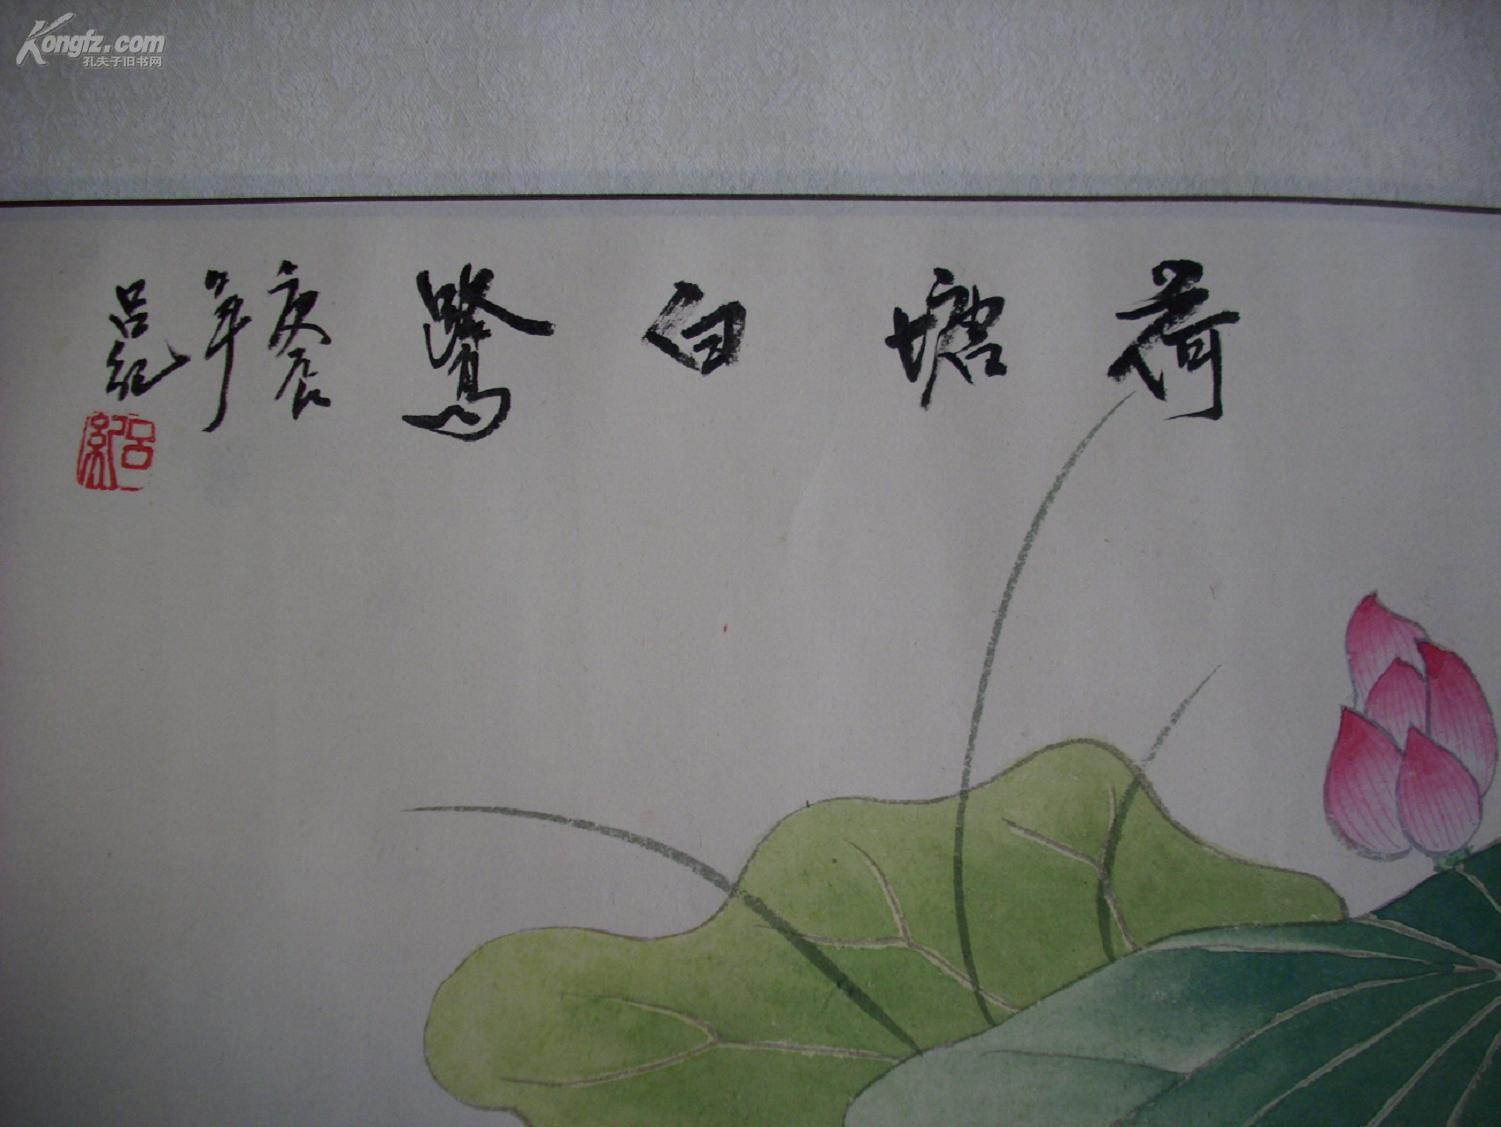 Kongfz.com
孔夫子旧书网
荷塘白鷺
庚辰
年
呂紀
呂紀